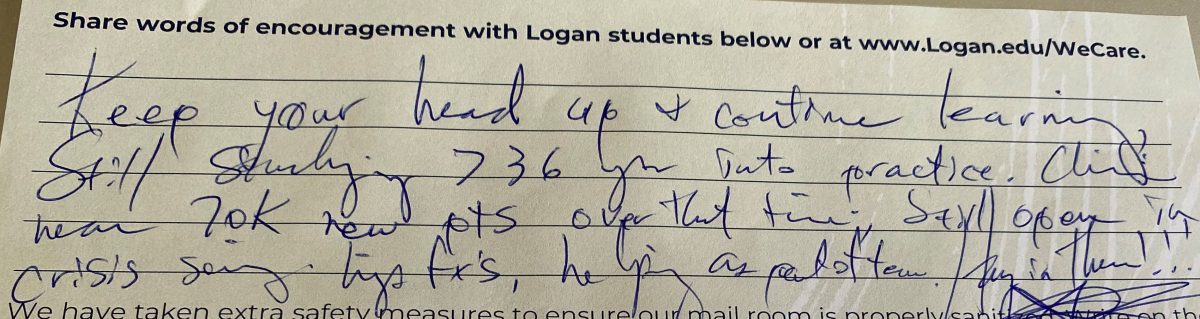 Share words of encouragement with Logan students below or at www.Logan.edu/WeCare.
Keep your head up & continue learning
Still Studying >36 yrs into practice.
near 70K new pts over that time. Still open in
crisis fx's, helping as part of team. in there!!!
We have taken extra safety measures to ensure our mail room is properly